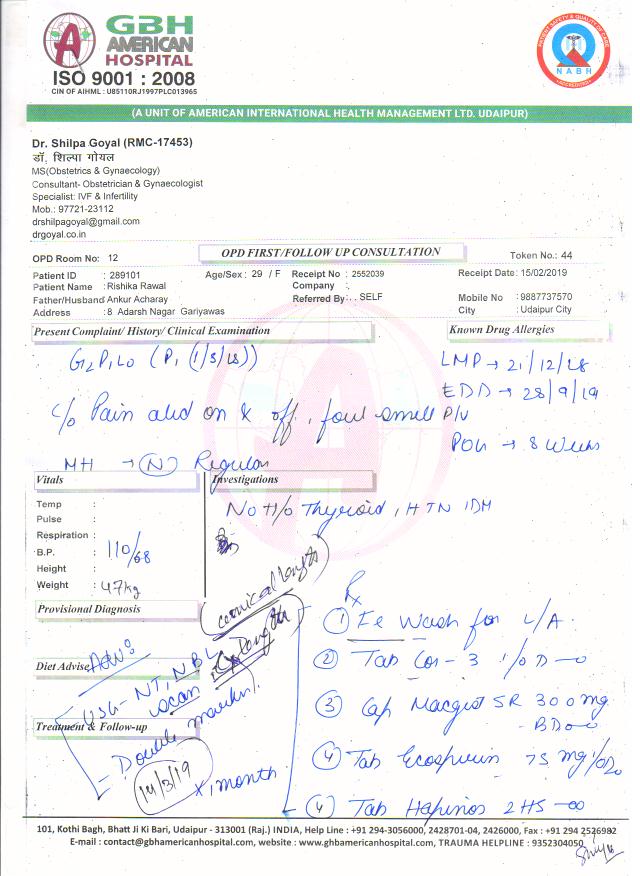 GBH
AMERICAN
HOSPITAL
ISO 9001 : 2008
CIN OF AIHML : U85110RJ1997PLC013965
PATIENT SAFETY & QUALITY OF CARE
NABH
(A UNIT OF AMERICAN INTERNATIONAL HEALTH MANAGEMENT LTD. UDAIPUR)
Dr. Shilpa Goyal (RMC-17453)
डॉ. शिल्पा गोयल
MS(Obstetrics & Gynaecology)
Consultant- Obstetrician & Gynaecologist
Specialist: IVF & Infertility
Mob.: 97721-23112
drshilpagoyal@gmail.com
drgoyal.co.in
OPD Room No: 12 OPD FIRST/FOLLOW UP CONSULTATION Token No.: 44
Patient ID : 289101 Age/Sex : 29 / F Receipt No : 2552039 Receipt Date: 15/02/2019
Patient Name : Rishika Rawal Company :
Father/Husband Ankur Acharay Referred By : . SELF Mobile No : 9887737570
Address : 8 Adarsh Nagar Gariyawas City : Udaipur City
Present Complaint/ History/ Clinical Examination Known Drug Allergies
G2P1L0 (P1 (1/5/18)) LMP → 21/12/18
EDD → 28/9/19
C/o Pain abd on & off, foul smell P/V
POG → 8 Weeks
MH → (N) Regular
Vitals Investigations
Temp :
Pulse :
Respiration :
B.P. : 110/68
Height :
Weight : 47kg
No H/o Thyroid, HTN, DM
Provisional Diagnosis
cervical length
Rx
① Wash for L/A
② Tab Cor-3 1/OD
③ Cap Macgest SR 300 mg
BD
④ Tab Ecosprin 75 mg 1/OD
④ Tab 2HS
Diet Advise
Adv:
USG- NT, NBL
scan
length
Treatment & Follow-up
- Double marker
14/3/19
x 1 month
101, Kothi Bagh, Bhatt Ji Ki Bari, Udaipur - 313001 (Raj.) INDIA, Help Line : +91 294-3056000, 2428701-04, 2426000, Fax : +91 294 2526982
E-mail : contact@gbhamericanhospital.com, website : www.gbhamericanhospital.com, TRAUMA HELPLINE : 9352304050